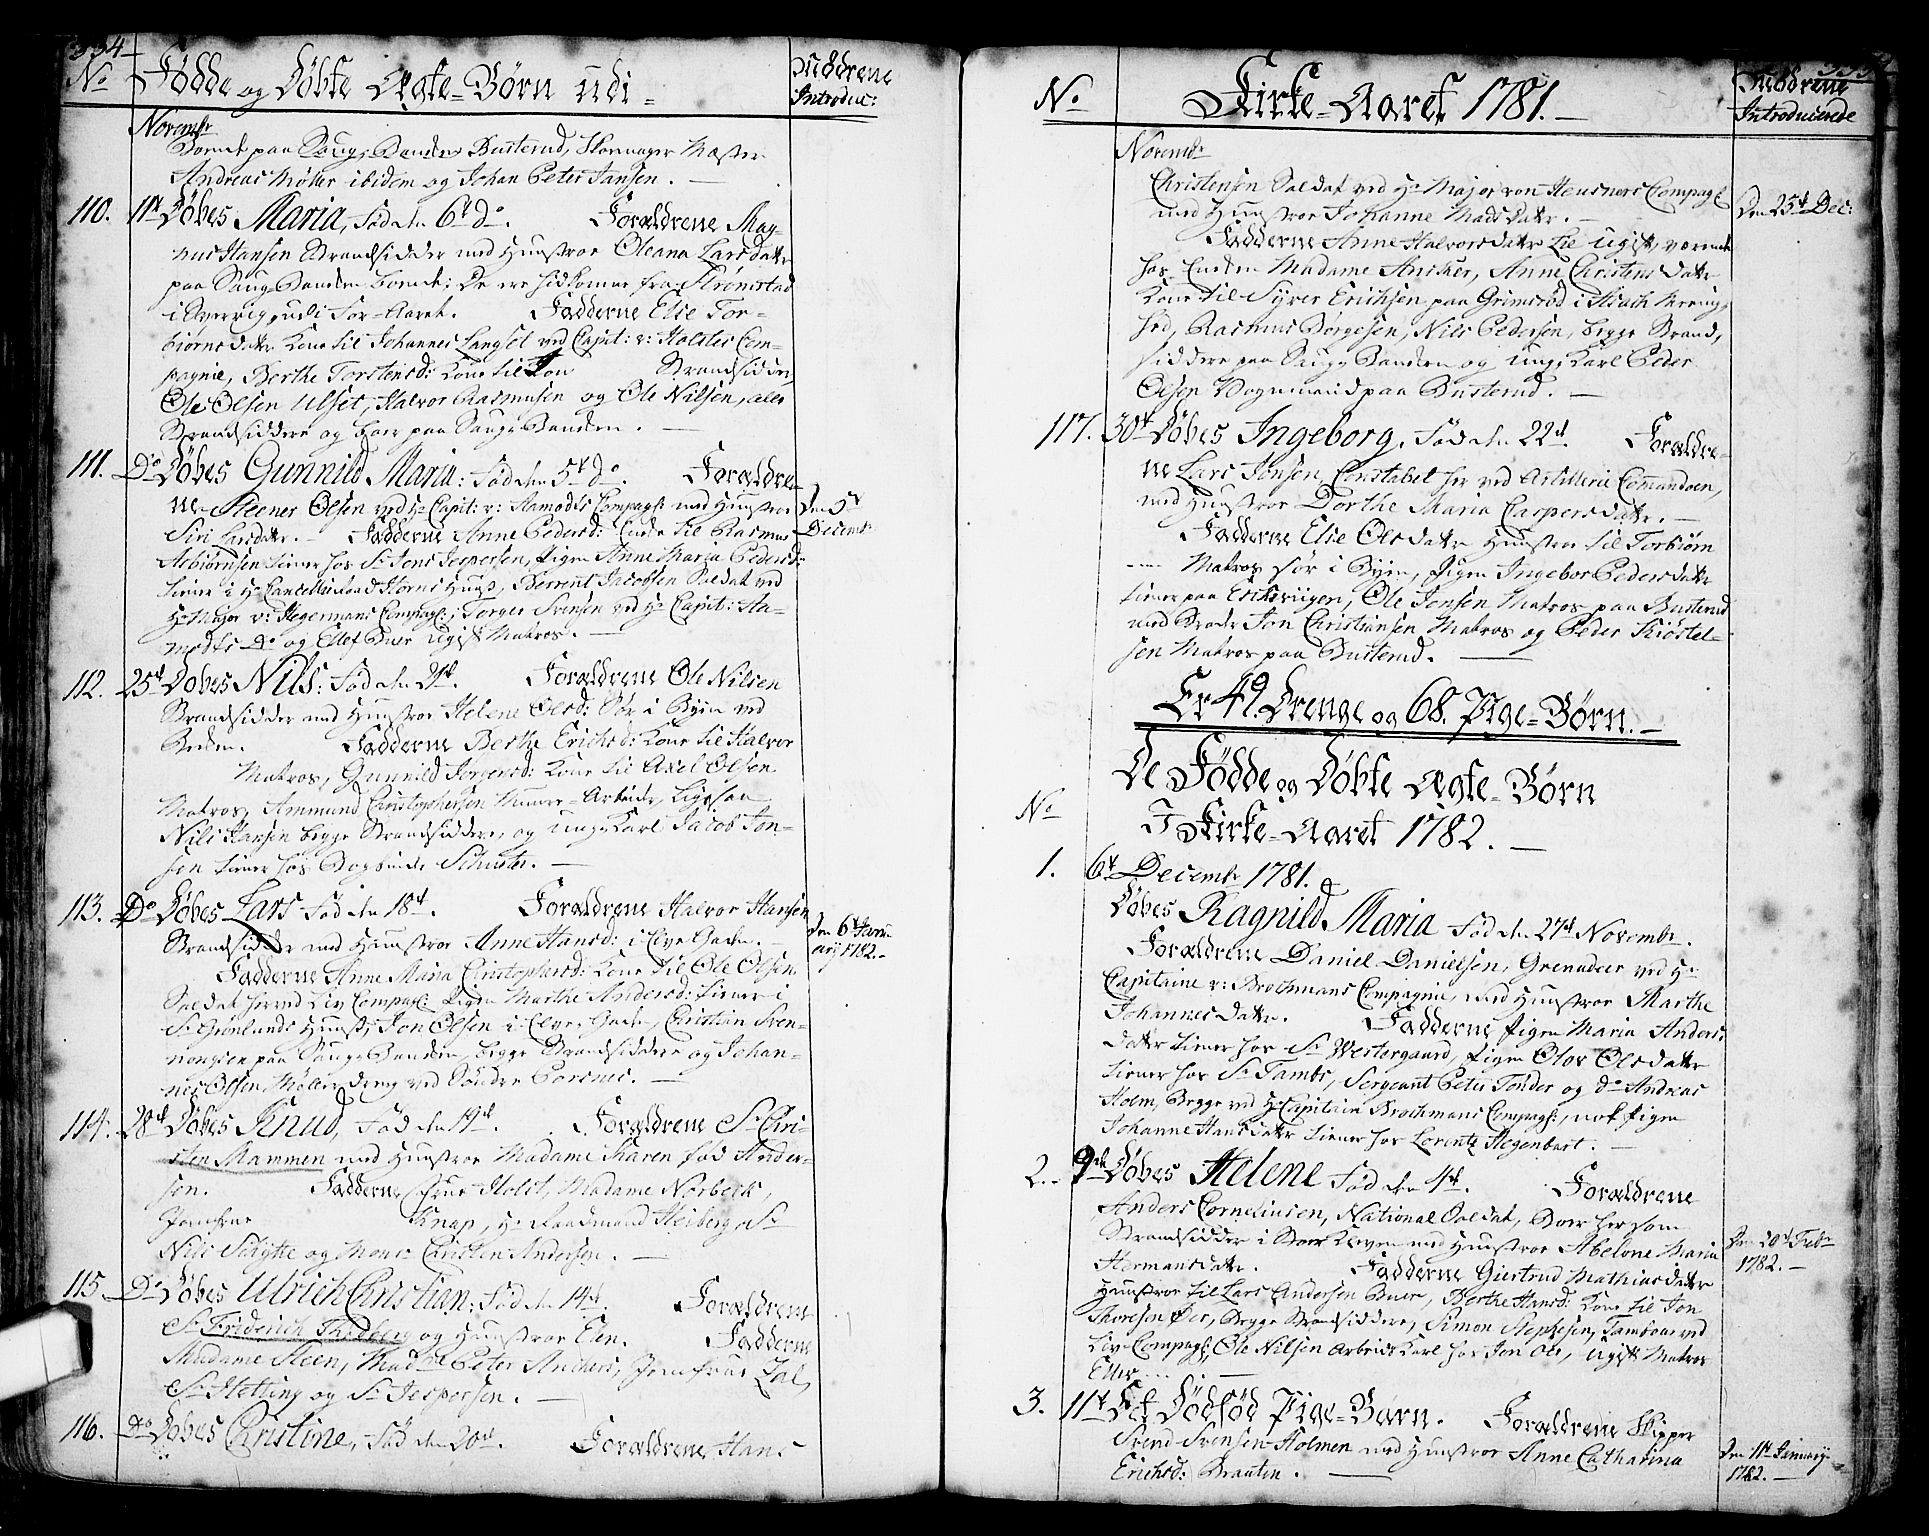 334
No Fødde og Døbte Ægte-Børn udi
Mødrene
Introduc:
Novembr
Boende paa Saug-Banden Busterud, Skomager Mæster
Andreas Møller ibidem og Johan Peter Jansen.
110. 11te Døbes Maria, Fød den 6te do. Forældrene Mag-
nus Hansen Strandsidder med Hustroe Oleana Larsdatr
paa Saug-Banden boende; De ere hidkomne fra Strømstad
i Sverrig, udi For-Aaret. Fadderne Elie Tor-
biørnsdatr Kone til Johannes Langset ved Capit: v: Holstes Com-
pagnie, Berthe Torstensd: Kone til Jon Strandsidder,
Ole Olsen Ulset, Halvor Rasmusen og Ole Nilsen, alle
Strandsiddere og boer paa Saug-Banden.
111. Do Døbes Gunnild Maria: Fød den 5te do. Forældre-
ne Steener Olsen ved Hr Capit: v: Hamodts Compagi: med Hustroe
Den 5te
Decembr
Siri Larsdatr. Fadderne Anne Pedersd: Enke til Rasmus
Asbiørnsen tiener hos Sr Jens Jespersen, Pigen Anne Maria Pedersd:
tiener i Hr Cancelliraad Hornes Huus, Berrent Jacobsen Soldat ved
Hr Major v: Hegermans Compagi:, Torger Svensen ved Hr Capit: Ha-
modts Do og Ellef Buer Ugift Matros.
112. 25de Døbes Nils: Fød den 21d. Forældrene Ole Nilsen
Strandsidder med Hustroe Helene Olsd: Sør i Byen ved
Broen. Fadderne Berthe Erichsd: Kone til Halvor
Matros, Gunnild Jørgensd: Kone til Axel Olsen
Matros, Ammund Christophersen Muur-Arbeider, Ligesaa
Nils Hansen begge Strandsiddere, og Ung-Karl Jacob Jon-
sen tiener hos Bogbinder Schuster.
113. Do Døbes Lars Fød den 18d. Forældrene Halvor Hansen
Den 6te Janu-
arij 1782.
Strandsidder med Hustroe Anne Hansd: i Elve-Gaden.
Fadderne Anne Maria Christophersd: Kone til Ole Olsen
Soldat her ved Liv Compagi: Pigen Marthe Andersd: tiener i
Sr Grønlands Huus, Jon Olsen i Elve-Gaden, Christian Sven-
nongsen paa Saug-Banden, begge Strandsiddere og Johan-
nes Olsen, Møller dreng ved Søndre Porsnes.
114. 28de Døbes Knud, Fød den 19d. Forældrene Sr Chri-
sten Mammen med Hustroe Madame Karen fød Ander-
sen. Fadderne Frue Holst, Madame Norbeck,
Jomfrue Knap, Hr Raadmand Heiberg, Sr
Nils Schytte og Monsr Christen Andersen.
115. Do Døbes Ulrich Christian: Fød den 14d. Forældrene
Sr Friderich Thrdberg og Hustroe Elen. Fadderne
Madame Steen, Madme Peter Anchers, Jomfrue Zal,
Sr Hetting og Sr Jespersen.
116. do Døbes Christine, Fød den 20d. Forældrene Hans
335
No Kirke-Aaret 1781.
Mødrene
Introducerede
Novembr
Christensen Soldat ved Hr Major von Heusners Compagi:
Den 25d Dec:
med Hustroe Johanne Madsdatr.
Fadderne Anne Halvorsdatr Lie ugift, værende
hos Enken Madame Ancher, Anne Christensdatr
Kone til Syver Erichsen paa Grimsrød i Id Menig-
hed, Rasmus Børgesen, Nils Pedersen, begge Strand-
siddere paa Saug-Banden og Ung-Karl Peder
Olsen Vognmand paa Busterud.
117. 30te Døbes Ingeborg, Fød den 22d. Forældre-
ne Lars Jonsen Constabel her ved Artillerie Comandoen,
med Hustroe Dorthe Maria Caspersdatr.
Fadderne Elie Olsdatr Hustroe til Torbiørn
Matros sør i Byen, Pigen Ingebor Pedersdatr
tiener paa Erichsviigen, Ole Jonsen Matros paa Busterud
med Broder Jon Christiansen Matros og Peder Kiøstel-
sen Matros paa Busterud.
Er 49. Drenge og 68. Pige-Børn.
De Fødde og Døbte Ægte-Børn
No
I Kirke-Aaret 1782.
1. 6te Decembr 1781.
Døbes Ragnild Maria Fød den 27d Novembr.
Forældrene Daniel Danielsen, Grenadeer ved Hr
Capitaine v: Brochmans Compagnie, med Hustroe Marthe
Johannesdatr. Fadderne Pigen Maria Anders
datter tiener hos Sr Westergaard, Pigen Olov Olsdatr
tiener hos Sr Tambs, Sergeant Peter Tønder og do Andreas
Holm, begge ved Hr Capitain Brochmans Compagi:, nok Pigen
Johanne Hansdatr tiener hos Lorentz Hegenbart.
2. 9de Døbes Helene Fød den 4d. Forældrene
Anders Corneliusen, National Soldat, boer her som
Strandsidder i med Hustroe Abelone Maria
Den 10d Febr
1782.
Hermansdatr. Fadderne Giertrud Mathiasdatr
Hustroe til Lars Andersen Buer, Berthe Hansd: Kone til Jon
Thoresen Øer, begge Strandsiddere, Simon Stephesen, Tambour ved
Liv-Compagi:, Ole Nilsen Arbeidskarl hos Jon Ole, ugift Matros
Eller
3. 11te Et Dødfød Pige-Barn. Forældrene Skipper
Svend Svensen Holmen med Hustroe Anne Catharina
Den 11d January
1782.
Erichsd: Braaten.